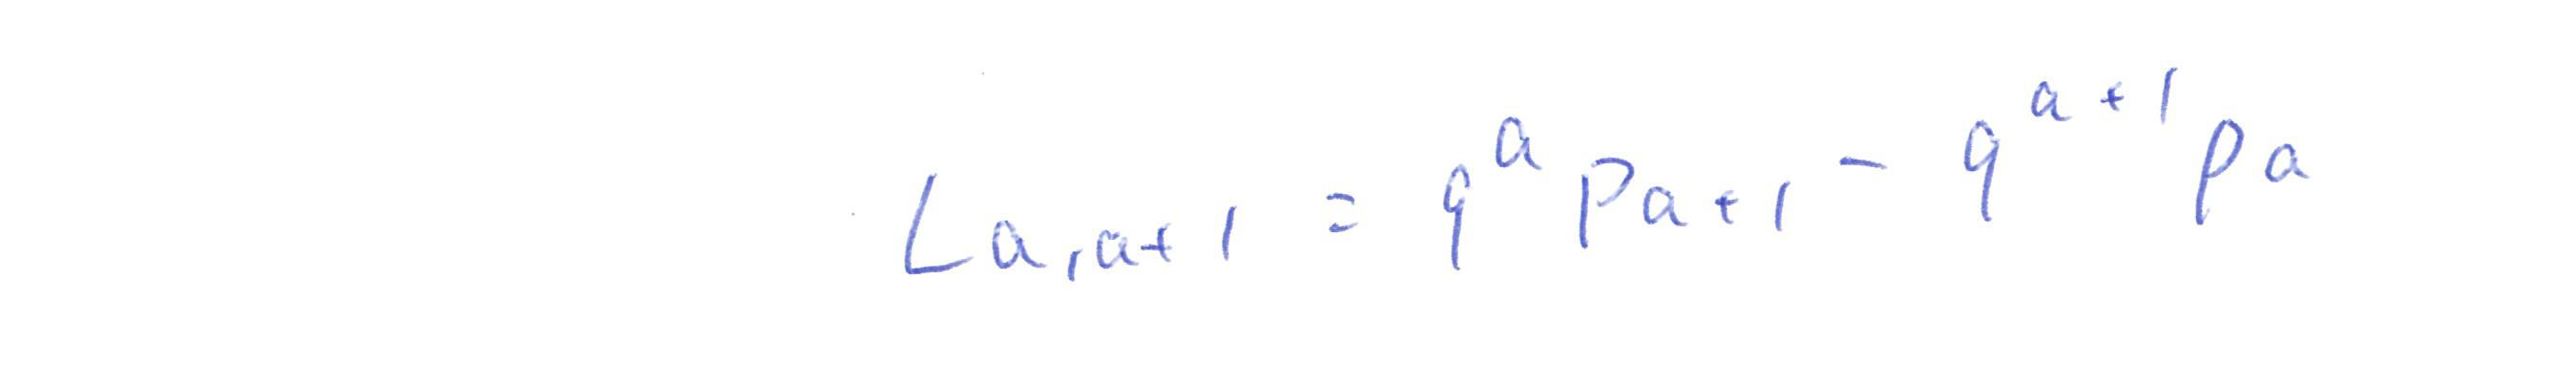 $L_{a,a+1} = q^a p_{a+1} - q^{a+1} p_a$